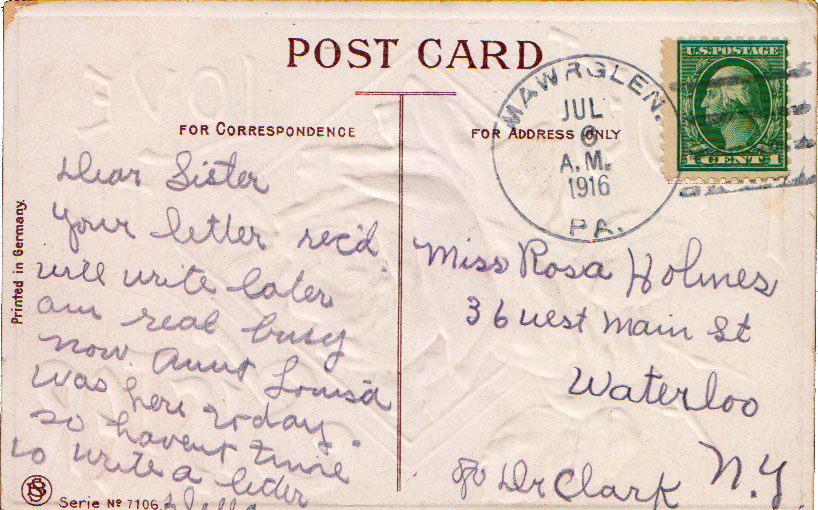 POST CARD
FOR CORRESPONDENCE
FOR ADDRESS ONLY
MAWRGLEN.
JUL
6
A.M.
1916
PA.
U.S. POSTAGE
1 CENT 1
Printed in Germany.
Dear Sister
Your letter rec'd
will write later
am real busy
now. Aunt Louisa
was here today.
so havent time
to write a letter
Miss Rosa Holmes
36 West Main St
Waterloo
N.Y.
Dr Clark
Serie No 7106.